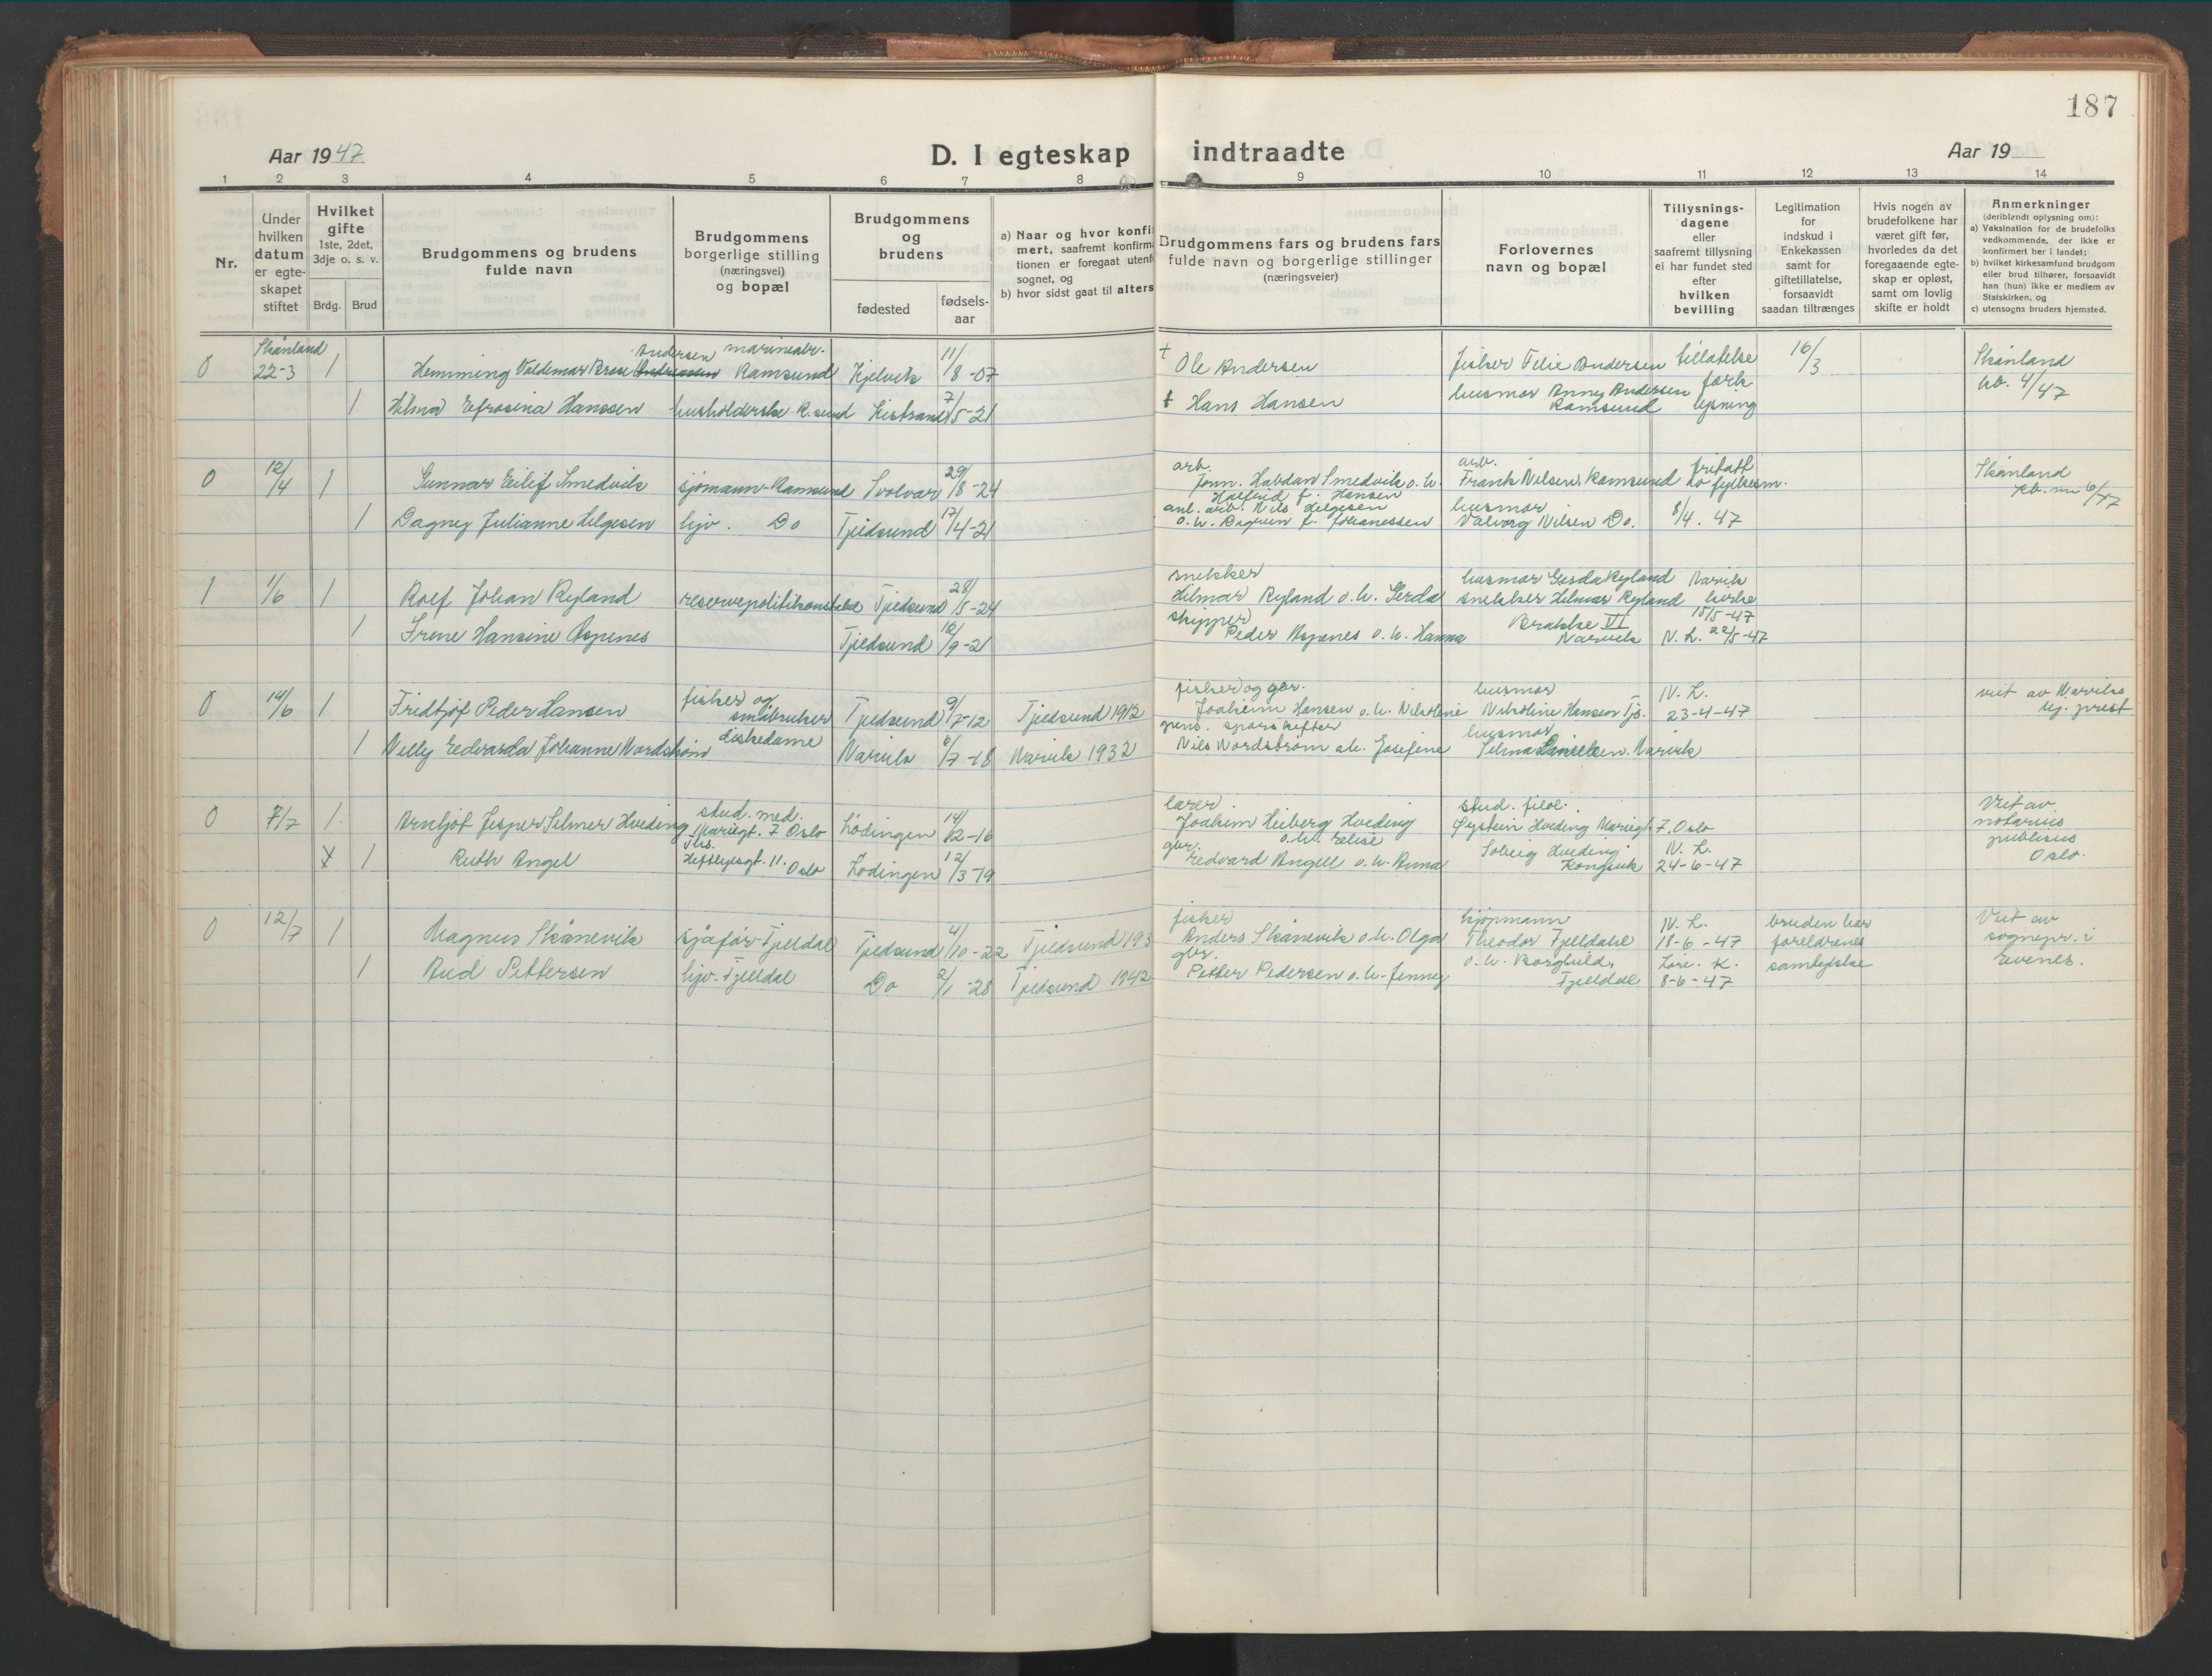 187
Aar 1947
D. I egteskap indtraadte
Aar 19
1 2 3 4 5 6 7 8 9 10 11 12 13 14
Nr.
Under
hvilken
datum
er egte-
skapet
stiftet
Hvilket
gifte
1ste, 2det,
3dje o. s. v.
Brdg. Brud
Brudgommens og brudens
fulde navn
Brudgommens
borgerlige stilling
(næringsvei)
og bopæl
Brudgommens
og
brudens
fødested
fødsels-
aar
a) Naar og hvor konfi
mert, saafremt konfirma
tionen er foregaat utenf
sognet, og
b) hvor sidst gaat til alters
Brudgommens fars og brudens fars
fulde navn og borgerlige stillinger
(næringsveier)
Forlovernes
navn og bopæl
Tillysnings-
dagene
eller
saafremt tillysning
ei har fundet sted
efter
hvilken
bevilling
Legitimation
for
indskud i
Enkekassen
samt for
giftetillatelse,
forsaavidt
saadan tiltrænges
Hvis nogen av
brudefolkene har
været gift før,
hvorledes da det
foregaaende egte-
skap er opløst,
samt om lovlig
skifte er holdt
Anmerkninger
(deriblandt oplysning om):
a) Vaksination for de brudefolks
vedkommende, der ikke er
konfirmert her i landet;
b) hvilket kirkesamfund brudgom
eller brud tilhører, forsaavidt
han (hun) ikke er medlem av
Statskirken, og
c) utensogns bruders hjemsted.
Skånland
0 22-3 1 Hemming Valdemar Andersen Ramsund Kjelvik 11/8-07
† Ole Andersen fisker Felix Andersen tillatelse 16/3 Skånland
1 Hilma Efrosina Hanssen husholderske R.sund Kistrand 7/5-21
† Hans Hansen husmor Anny Andersen Ramsund kb. 4/47
0 12/4 1 Gunnar Eilif Smedvik sjömann-Ramsund Svolvær 29/8-24
arb. Halvdan Smedvik o.h.
f. Hansen
arb. Frank Nilsen, Ramsund
Skånland
6/47
1 Dagny Julianne Helgesen hjv. Do Tjeldsund 17/4-21
arb. Nils Helgesen
o.h. Dagrun f. Johanessen
husmor
Valborg Nilsen Do. 8/4. 47
1 1/6 1 Rolf Johan Ryland reservepolitikonstabel Tjeldsund 28/5-24
snekker
Hilmar Ryland o.h. Gerda
husmor Gerda Ryland Narvik
snekker Hilmar Ryland kirke
15/5-47
1 Irene Hansine Aspenes Tjeldsund 18/9-21
skipper
Peder Aspenes o.h. Hanna
Brakke VI
Narvik N. L. 22/5-47
0 14/6 1 Fridtjof Peder Hansen fisker og
småbruker Tjeldsund 9/7-12 Tjeldsund 1912
fisker og gbr.
Joakim Hansen o.h. Nikoline
husmor
Nikoline Hansen Tjs. N. L.
23-4-47
viet av Narviks
prest
1 Nelly Edvarda Johanne Nordstrøm diskedame Narvik 6/7-18 Narvik 1932
pens.
Nils Nordstrøm o.h. Josefine
husmor
Selma Danielsen. Narvik
0 7/7 1 Arnljot Jesper Selmer Hveding stud. med.
Mariegt. 7 Oslo Lödingen 14/12-16
lærer.
Joakim Heiberg Hveding
o.h. Elise
stud. filol.
Øystein Hveding Mariegt 7, Oslo
Viet av
notarius
publicus
Oslo.
1 Ruth Angel
11. Oslo Lödingen 12/3-19
gbr.
Edvard Angell o.h. Anna
Solveig Hveding
N. L.
24-6-47
0 12/7 1 Magnus Skånevik sjåfør-Fjelldal Tjeldsund 4/10-22 Tjeldsund 193
fisker
Anders Skånevik o.h. Olga
kjøpmann
Theodor Fjelldahl
N. L.
18-6-47
bruden har
foreldrenes
samtykke
Viet av
sognepr. i
Evenes.
1 Aud Pettersen hjv. Fjelldal Do 2/1-28 Tjeldsund 1942
gbr.
Petter Pedersen o.h. Jenny
o.h. Borghild,
Fjelldal K.
8-6-47